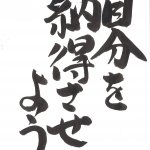 自分を
納得させ
よう